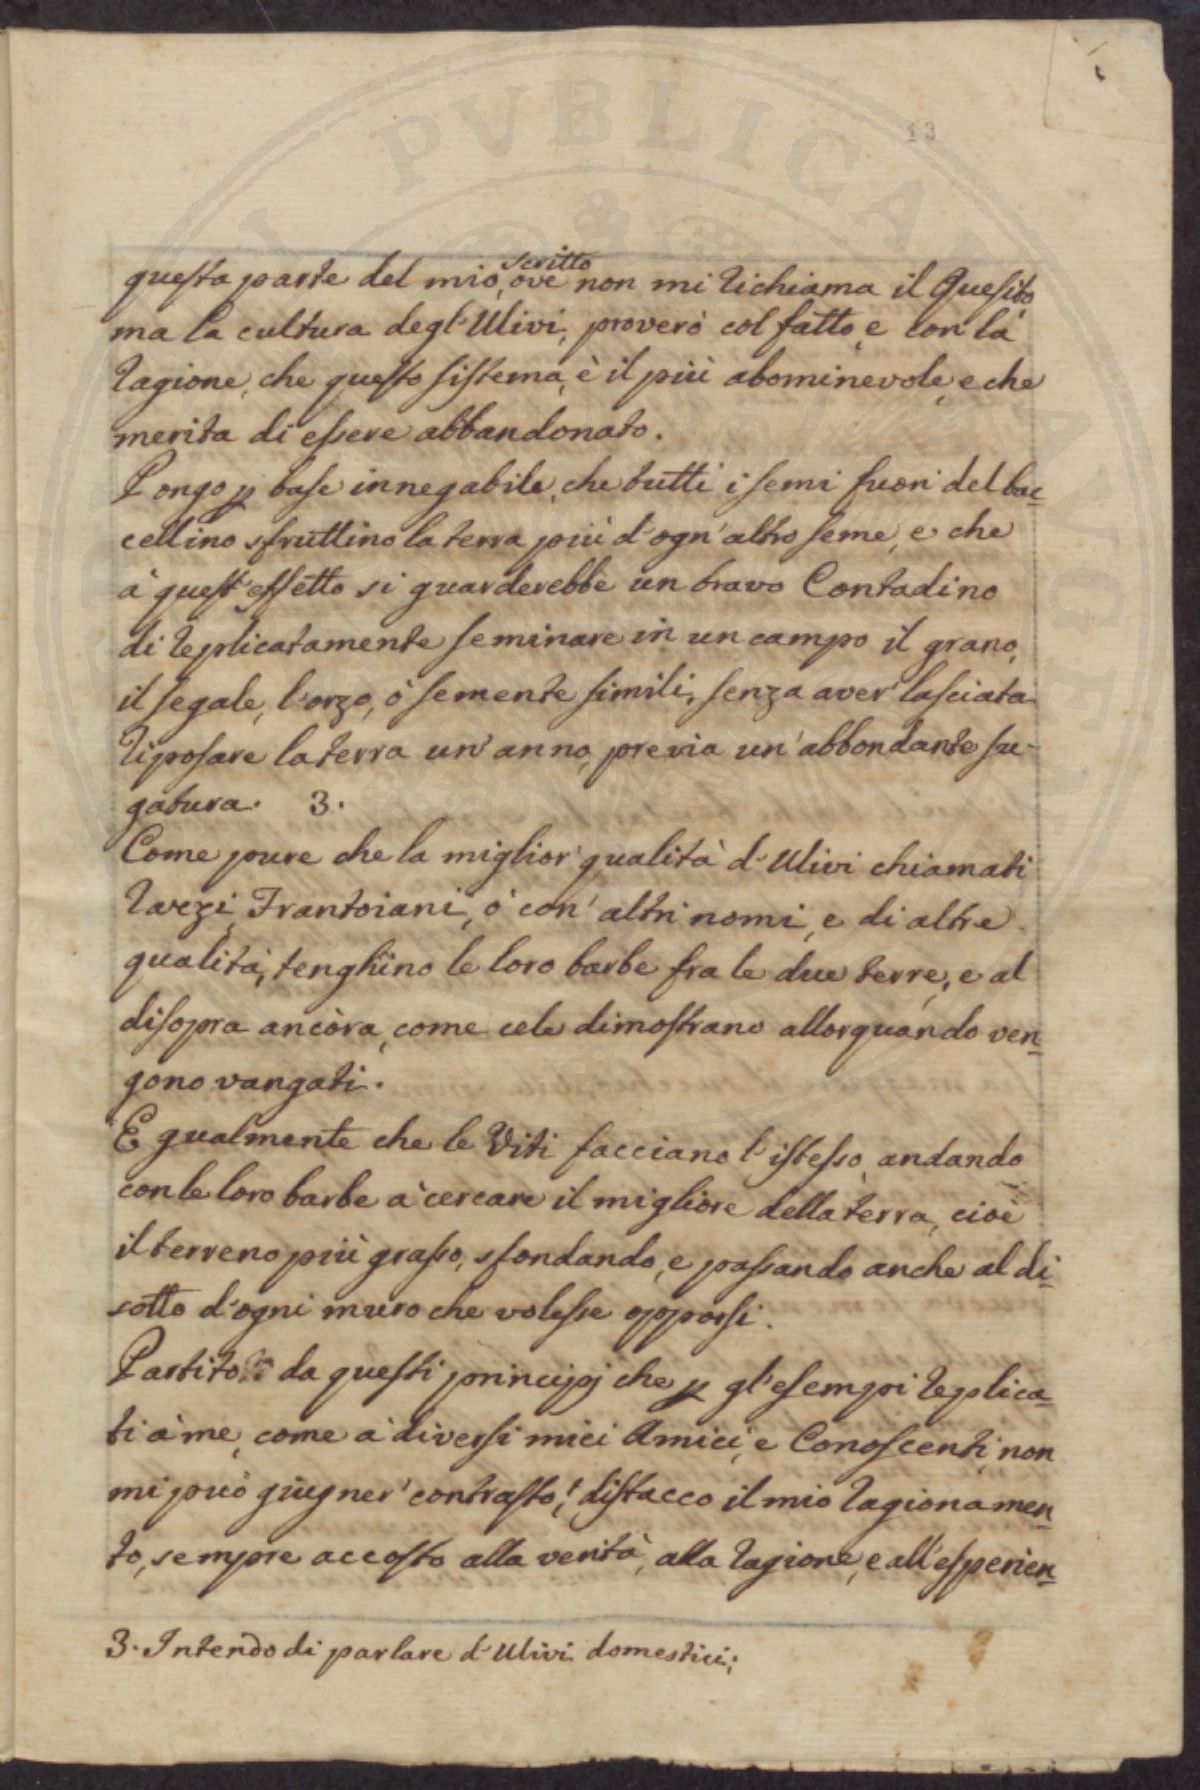 13
questa parte del mio scritto, ove non mi richiama il Quesito,
ma la cultura degl'Ulivi, proverò col fatto, e con la
ragione, che questo sistema, è il più abominevole, e che
merita di essere abbandonato.
Pongo p base innegabile, che tutti i semi fuori del bac=
cellino sfruttino la terra più d'ogn'altro seme, e che
à quest'effetto si guarderebbe un bravo Contadino
di replicatamente seminare in un campo il grano,
il segale, l'orzo, ò semente simili, senza aver' lasciata
riposare la terra un'anno, previa un'abbondante su-
gatura. 3.
Come pure che la miglior' qualità d'Ulivi chiamati
Razzi, Frantoiani, ò con' altri nomi, e di altre
qualità, tenghino le loro barbe fra le due terre, e al
disopra ancòra, come cele dimostrano allorquando ven=
gono vangati.
Egualmente che le Viti facciano l'istesso, andando
con le loro barbe à cercare il migliore della terra, cioè
il terreno più grasso, sfondando, e passando anche al di=
sotto d'ogni muro che volesse opporsi.
Partito da questi principj che p gl'esempi replica=
ti à me, come à diversi miei Amici, e Conoscenti, non
mi può giugner' contrasto, distacco il mio ragionamen=
to, sempre accosto alla verità, alla ragione, e all'esperien=
3. Intendo di parlare d'Ulivi domestici;
PVBLICA
AVGVSTA